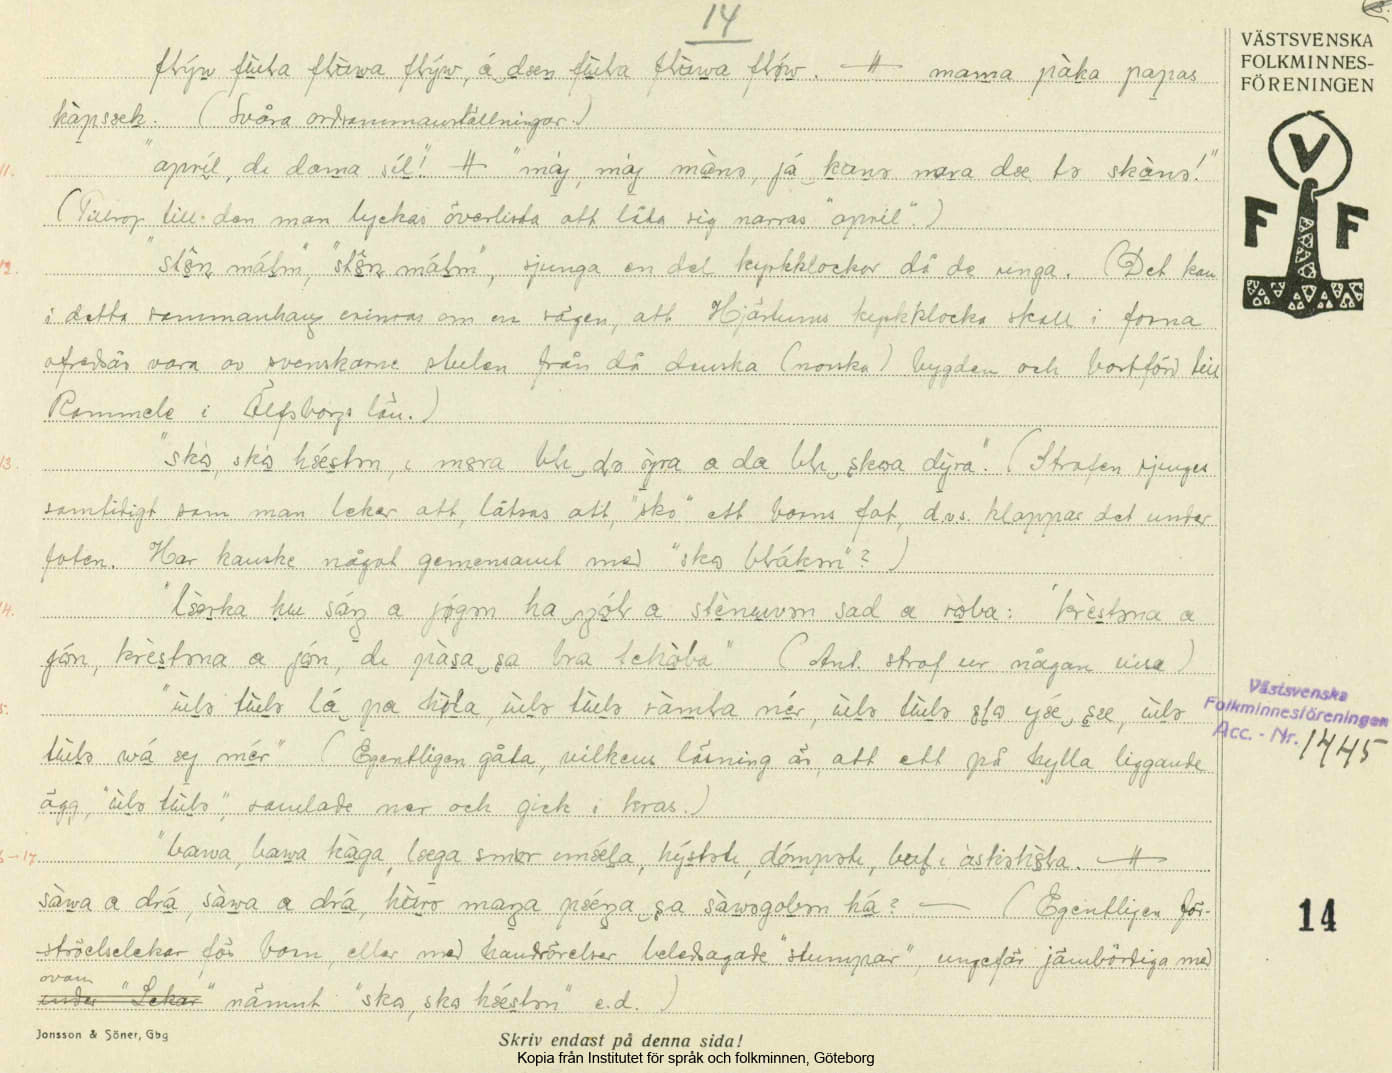 14
flýw fula fluwa flýw, á dæn fula fluwa flýw. — # mama pàka papas
kàpsæk. (Svåra ordsammanställningar.)
11. "apríl, de doma síl"! # "máj, máj màns, já kans nara dæ ts skàns!"
(Tillrop till den man lyckas överlista att låta sig narras "april".)
12. málm", málm", sjunga en del kyrkklockor då de ringa. (Det kan
i detta sammanhang erinras om en sägen, att Hjärtums kyrkklocka skall i forna
ofredsår vara av svenskarne stulen från då danska (norska) bygden och bortförd till
Rommele i Älfsborgs län.)
13. "sko, sko hǽstən, i mora bli də ò̱ra a da bli skoa dỳra". (Strofen sjunges
samtidigt som man leker att, låtsas att, "sko" ett barns fot, d.v.s. klappar det under
foten. Har kanske något gemensamt med "sko blákən"?)
14. "lærka hu sáŋ a jógən ha a sad a roba: "krèstəna a
jón, krèstəna a jón, di pàsa sa bra (Ant. strof ur någon visa)
15. "ùlə tùlə lá pa hỳla, ùlə tùlə ràmla nér, ùlə tùlə ùlə
tùlə wá mér" (Egentligen gåta, vilkens lösning är, att ett på hylla liggande
ägg, "ùlə tùlə", ramlade ner och gick i kras.)
16–17 "bawa, bawa kàga, læga smør — #
sàwa a drá, sàwa a drá, maŋa pǽŋa há? — (Egentligen för-
ströelselekar för barn, eller med handrörelser beledsagade "stumpar", ungefär jämbördiga med
ovan
under "Lekar" nämnt "sko, sko hǽstən" e.d. )
VÄSTSVENSKA
FOLKMINNES-
FÖRENINGEN
V
F F
Västsvenska
Folkminnesföreningen
Acc. - Nr. 1445
14
Jonsson & Söner, Gbg
Skriv endast på denna sida!
Kopia från Institutet för språk och folkminnen, Göteborg